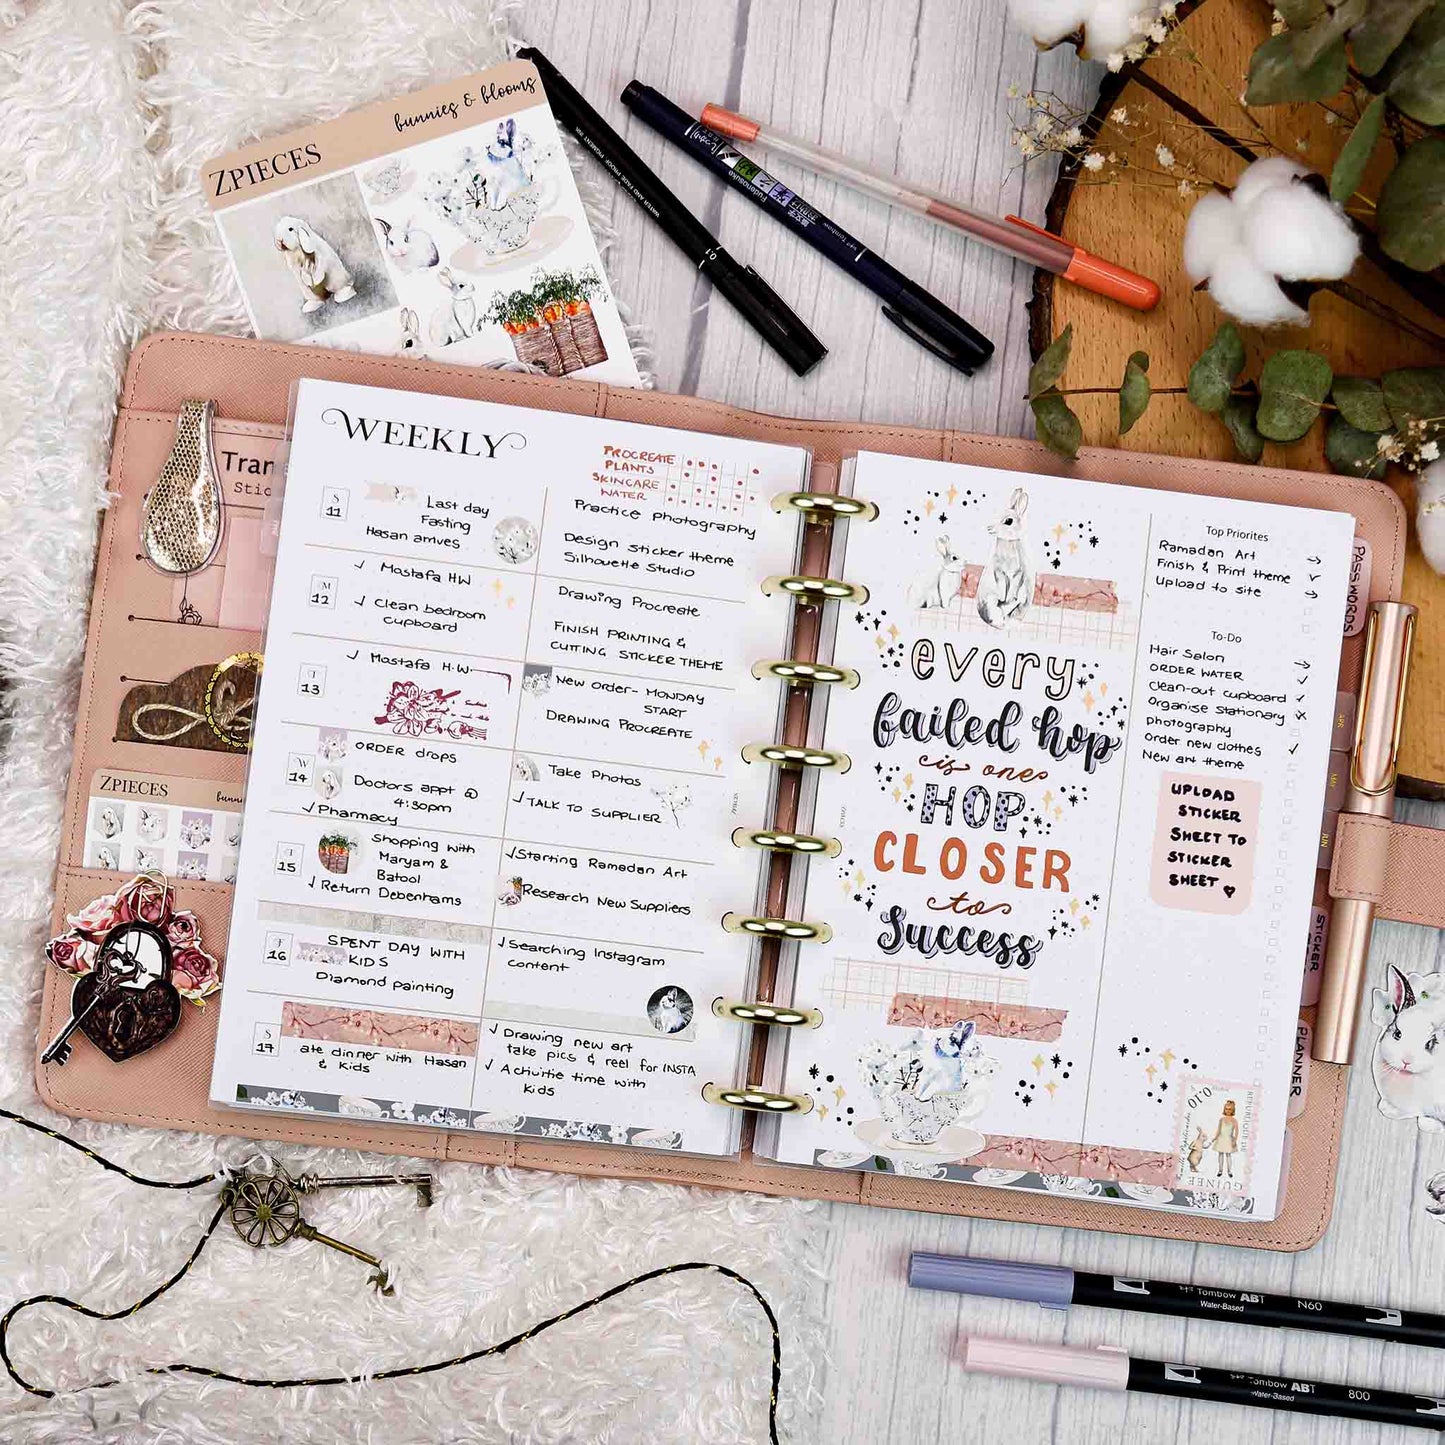 bunnies & blooms
ZPIECES
WATER AND FADE PROOF, PIGMENT INK
0.1
Fudenosuke
Tombow
Tran
Stic
ZPIECES
bunni
WEEKLY
PROCREATE
PLANTS
SKINCARE
WATER
S
11
Last day
Fasting
Hasan arrives
Practice photography
Design sticker theme
Silhouette Studio
M
12
✓ Mostafa HW
✓ Clean bedroom
cupboard
Drawing Procreate
FINISH PRINTING &
CUTTING STICKER THEME
T
13
✓ Mostafa H.W.
New order- MONDAY
START
DRAWING PROCREATE
W
14
ORDER drops
Doctors appt @
4:30pm
✓ Pharmacy
Take Photos
✓ TALK TO SUPPLIER
T
15
Shopping with
Maryam &
Batool
✓ Return Debenhams
✓ Starting Ramadan Art
Research New Suppliers
F
16
SPENT DAY WITH
KIDS
Diamond painting
✓ Searching Instagram
content
S
17
ate dinner with Hasan
& kids
✓ Drawing new art
take pics & reel for INSTA
✓ Activitie time with
kids
ZPIECES
every
failed hop
is one
HOP
CLOSER
to
Success
Top Priorites
Ramadan Art →
Finish & Print theme ✓
Upload to site →
To-Do
Hair Salon →
ORDER WATER ✓
Clean-out cupboard ✓
Organise Stationary ×
photography
Order new clothes ✓
New art theme
UPLOAD
STICKER
SHEET TO
STICKER
SHEET ♥
0,10
GUINEE
PASSWORDS
APR
MAY
JUN
STICKER
PLANNER
Tombow ABT N60
Water-Based
Tombow ABT 800
Water-Based